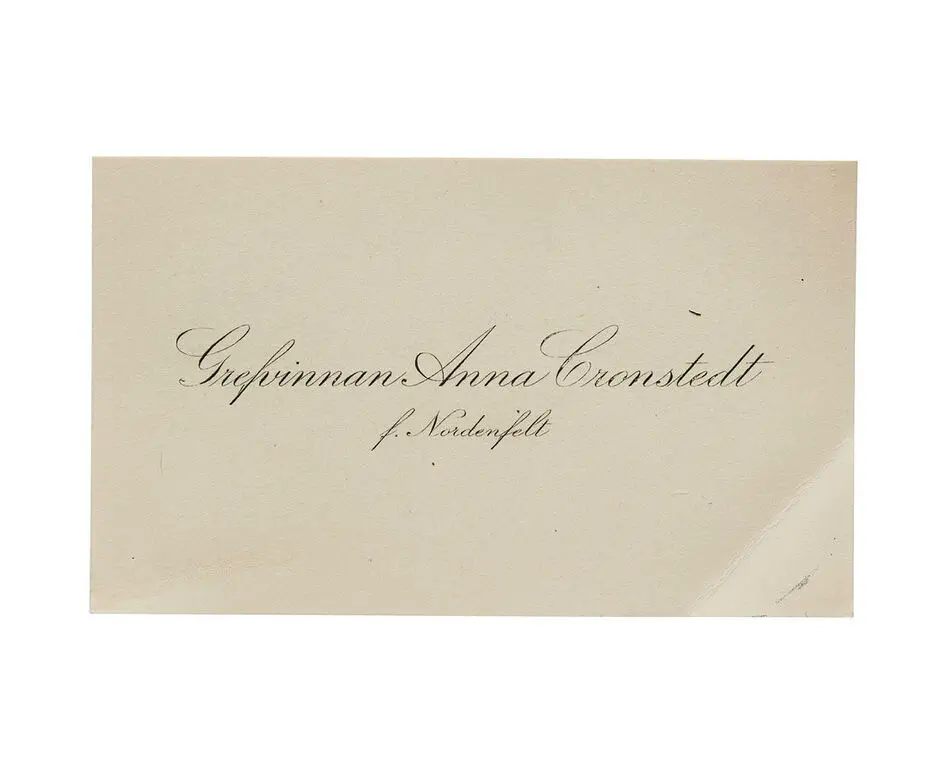 Grefvinnan Anna Cronstedt
f. Nordenfelt